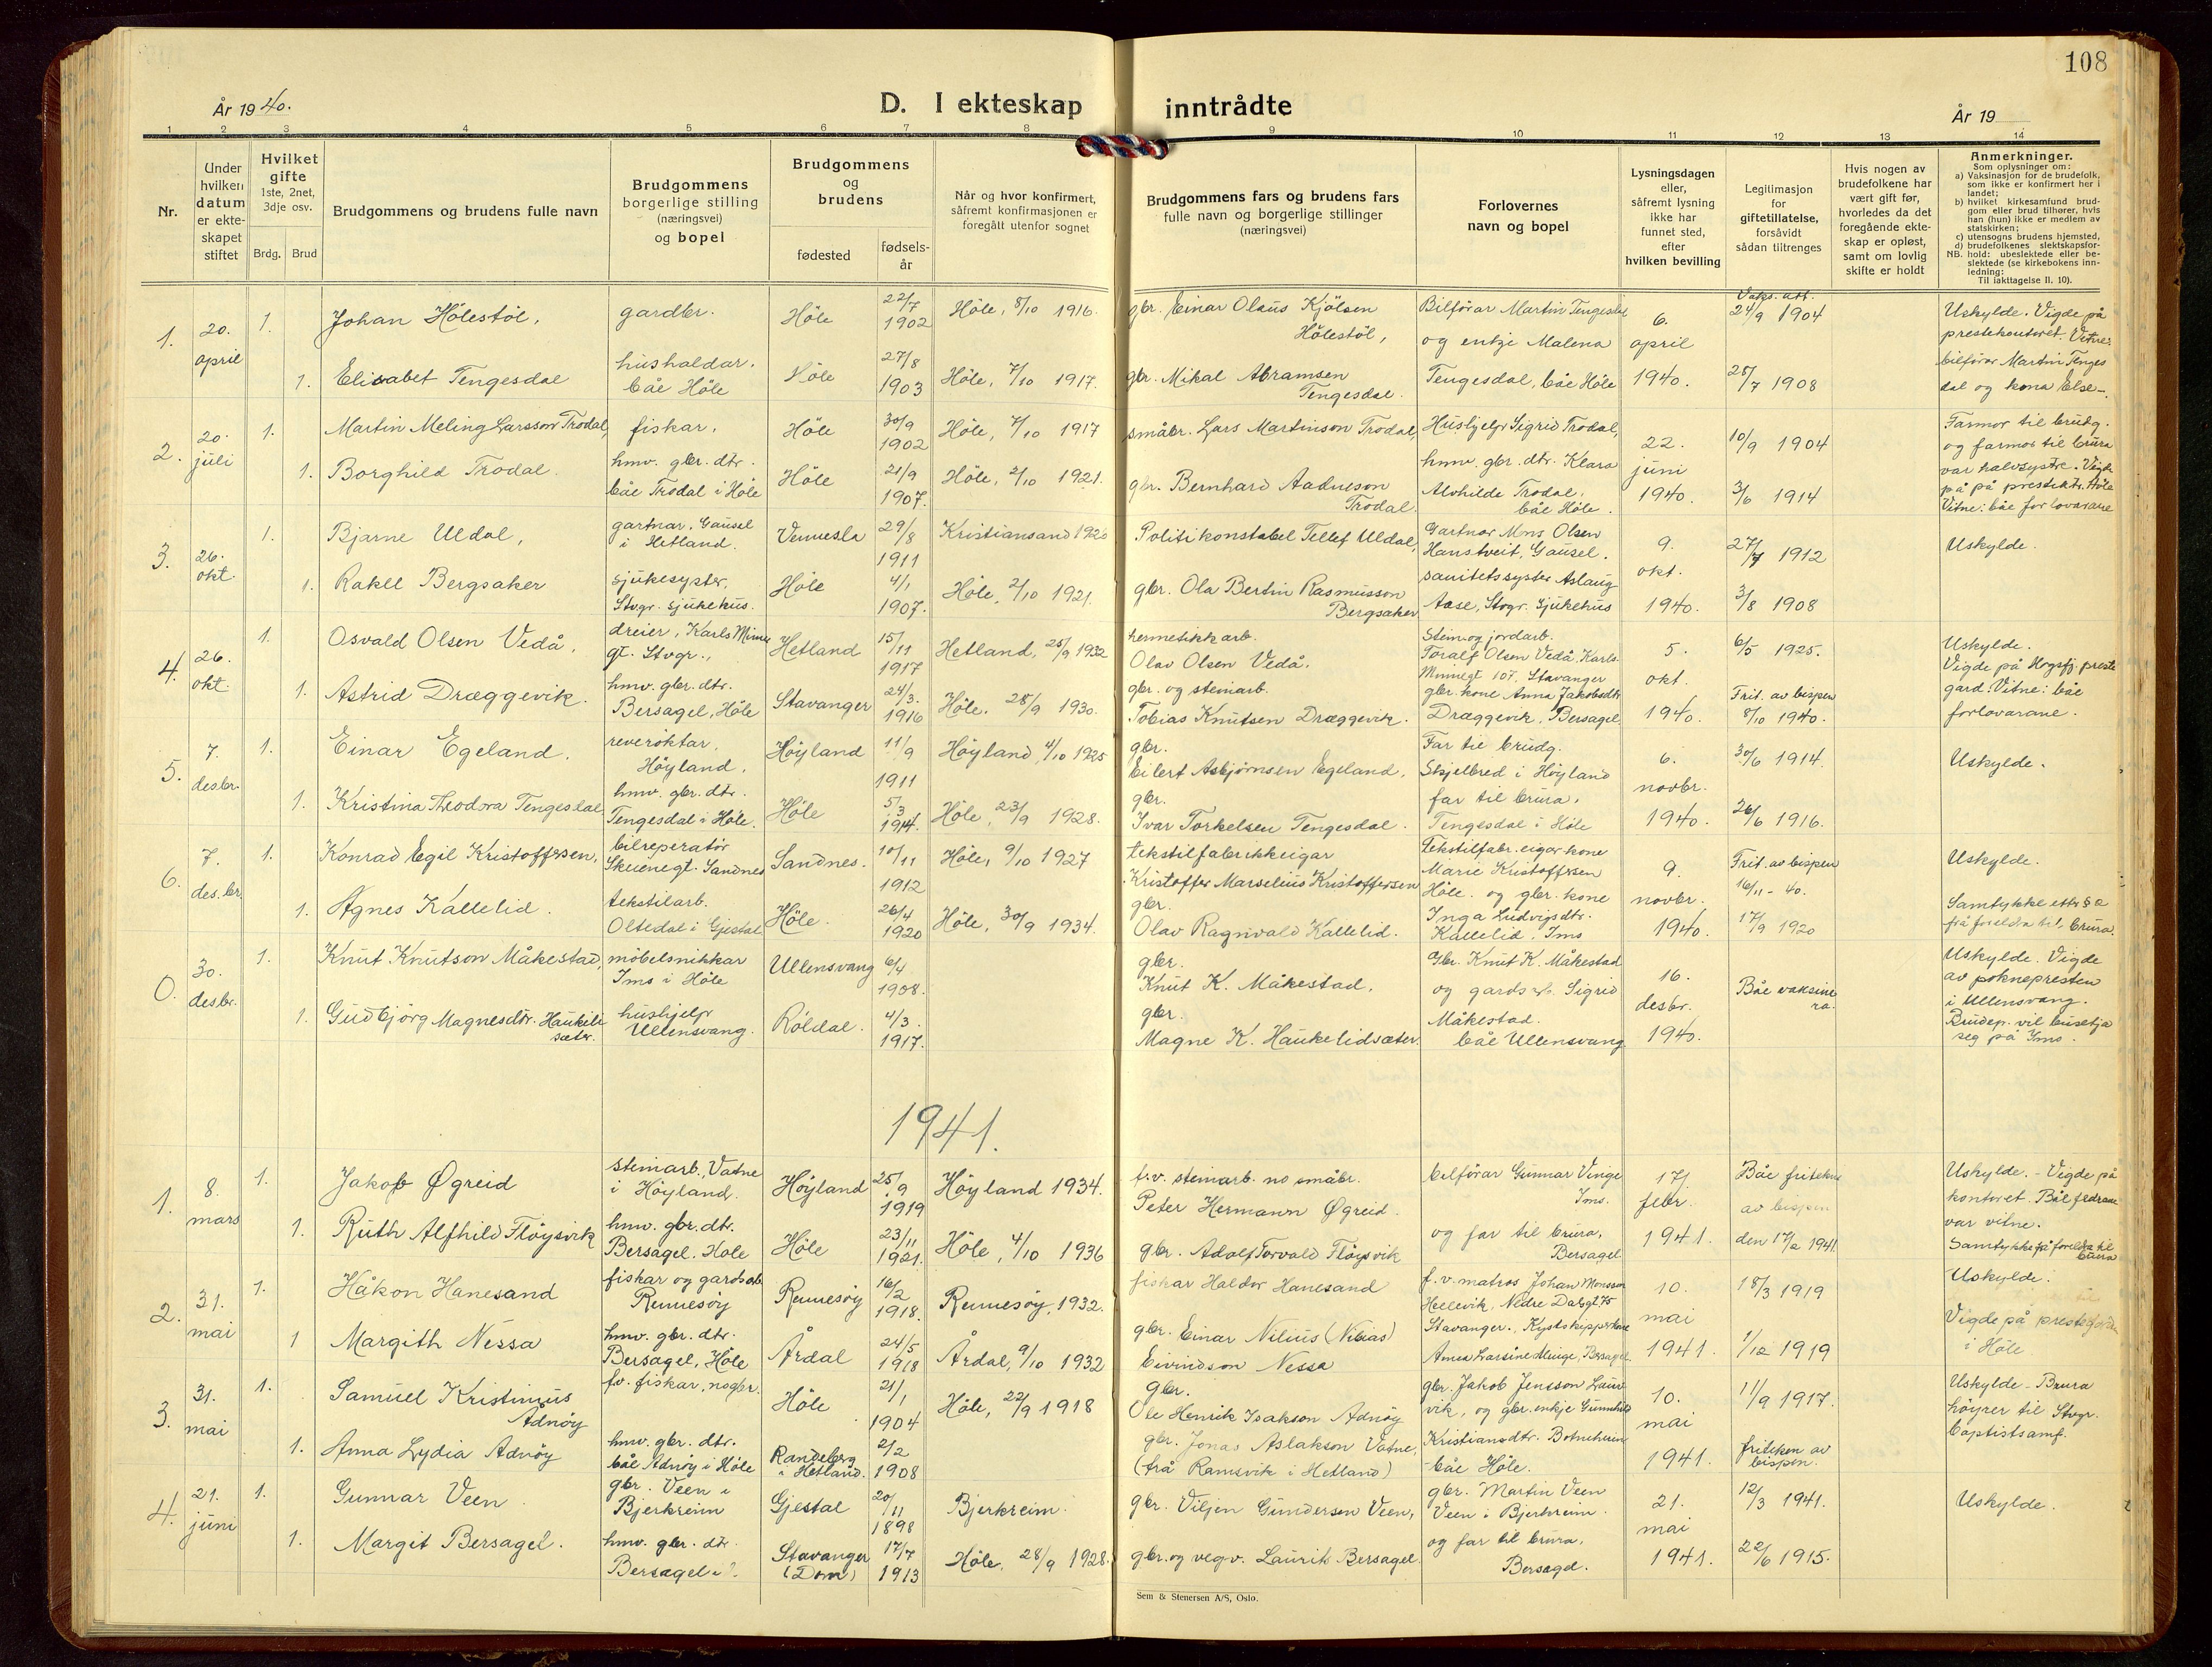 108
År 1940.
D. I ekteskap inntrådte
År 19
1 2 3 4 5 6 7 8 9 10 11 12 13 14
Nr.
Under
hvilken
datum
er ekte-
skapet
stiftet
Hvilket
gifte
1ste, 2net,
3dje osv.
Brdg. Brud
Brudgommens og brudens fulle navn
Brudgommens
borgerlige stilling
(næringsvei)
og bopel
Brudgommens
og
brudens
fødested
fødsels-
år
Når og hvor konfirmert,
såfremt konfirmasjonen er
foregått utenfor sognet
Brudgommens fars og brudens fars
fulle navn og borgerlige stillinger
(næringsvei)
Forlovernes
navn og bopel
Lysningsdagen
eller,
såfremt lysning
ikke har
funnet sted,
efter
hvilken bevilling
Legitimasjon
for
giftetillatelse,
forsåvidt
sådan tiltrenges
Hvis nogen av
brudefolkene har
vært gift før,
hvorledes da det
foregående ekte-
skap er opløst,
samt om lovlig
skifte er holdt
Anmerkninger.
Som oplysninger om:
a) Vaksinasjon for de brudefolk,
som ikke er konfirmert her i
landet;
b) hvilket kirkesamfund brud-
gom eller brud tilhører, hvis
han (hun) ikke er medlem av
statskirken;
c) utensogns brudens hjemsted,
d) brudefolkenes slektskapsfor-
NB. hold: ubeslektede eller be-
slektede (se kirkebokens inn-
ledning:
Til iakttagelse II. 10).
1.
20.
april
1.
Johan Hölestöl,
gardbr.
Höle
22/7
1902
Höle, 8/10 1916.
gbr. Einar Olaus Kjölsen
Hölestöl,
Bilförar Martin Tengesdal
og enkje Malena
Tengesdal, båe Höle
6.
april
1940.
Vaks. att.
24/9 1904
Uskylde. Vigde på
prestekontoret. Vitne:
bilförar Martin Tenges
dal og kona Else-.
1.
Elisabet Tengesdal
hushaldar.
båe Höle
Höle
27/8
1903
Höle, 7/10 1917.
gbr. Mikal Abramsen
Tengesdal.
28/7 1908
2.
20.
juli
1.
Martin Meling Larsson Trodal,
fiskar.
Höle
30/9
1902
Höle, 7/10 1917
småbr. Lars Martinson Trodal,
Hushjelp Sigrid Trodal,
hmv. gbr. dtr. Klara
Alvhilde Trodal.
båe Höle.
22.
juni
1940.
10/9 1904
Farmor til brudg.
og farmor til brura
var halvsystre. Vigde
på på prestektr. Höle
Vitne: båe forlovarane
1.
Borghild Trodal.
hmv. gbr. dtr.
båe Trodal i Höle
Höle
21/9
1907.
Höle, 2/10 1921.
gbr. Bernhard Aadneson
Trodal.
3/6 1914
3.
26.
okt.
1.
Bjarne Uldal,
gartnar. Gausel
i Hetland.
Vennesla
29/8
1911
Kristiansand 1926
Politikonstabel Tellef Uldal,
Gartnar Mons Olsen
Hanstveit, Gausel.
sanitetssyster Aslaug
Aase, Stvgr. Sjukehus
9.
okt.
1940.
27/7 1912
Uskylde.
1.
Rakel Bergsaker
sjukesyster.
Stvgr. sjukehus.
Höle
4/1
1907.
Höle, 2/10 1921.
gbr. Ola Bertin Rasmusson
Bergsaker
3/8 1908
4.
26.
okt.
1.
Osvald Olsen Vedå.
dreier, Karls Minne
gt. Stvgr.,
Hetland
15/11
1917
Hetland, 25/9 1932
hermetikkarb.
Olav Olsen Vedå.
Stein og jordarb.
Toralf Olsen Vedå, Karls
Minnegt 107. Stavanger
gbr. kone Anna Jakobsdtr
Dræggevik, Bersagel
5.
okt.
1940.
6/5 1925.
Uskylde.
Vigde på Högsfj. preste
gard. Vitne: båe
forlovarane.
1.
Astrid Dræggevik.
hmv. gbr. dtr.
Bersagel, Höle
Stavanger
24/3.
1916
Höle. 28/9 1930.
gbr. og steinarb.
Tobias Knutsen Dræggevik.
Frit. av bispen
8/10 1940.
5.
7.
desbr.
1.
Einar Egeland.
reverøktar.
Höyland.
Höyland
11/9
1911
Höyland, 4/10 1925
gbr.
Eilert Asbjørnsen Egeland.
Far til brudg.
Skjelbred i Höyland
far til brura,
Tengesdal i Höle
6.
novbr.
1940.
30/6 1914.
Uskylde.
1.
Kristina Theodora Tengesdal
hmv. gbr. dtr.
Tengesdal i Höle.
Höle
5/3
1914.
Höle, 23/9 1928.
gbr.
Ivar Torkelsen Tengesdal.
26/6 1916.
6.
7.
des.br.
1.
Konrad Egil Kristoffersen,
bilreperatör
Skeienegt. Sandnes
Sandnes.
10/11
1912
Höle, 9/10 1927
tekstilfabrikkeigar
Kristoffer Marselius Kristoffersen
Tekstilfabr. eigar kone
Marie Kristoffersen
Höle. og gbr. kone
Inga Ludvigsdtr.
Kallelid. Ims
9.
novbr.
1940.
Frit. av bispen
16/11 - 40.
Uskylde.
1.
Agnes Kallelid.
tekstilarb.
Oltedal i Gjestal
Höle.
26/4
1920
Höle, 30/9 1934.
gbr.
Olav Ragnvald Kallelid.
17/9 1920
Samtykke ette §2
frå foreldra til brura.
0.
30.
desbr.
1.
Knut Knutson Måkestad,
möbelsnikkar
Ims i Höle
Ullensvang
6/4
1908.
gbr.
Knut K. Måkestad.
Gbr. Knut K. Måkestad
og gards Sigrid
Måkestad.
båe Ullensvang
16.
desbr.
1940.
Båe vaksine
ra.
Uskylde. Vigde
av soknepresten
i Ullensvang.
Brudep. vil busetja
seg på Ims.
1.
Gudbjörg Magnesdtr. Haukeli
sæter.
hushjelp
Ullensvang.
Röldal.
4/3.
1917.
gbr.
Magne K. Haukelidsæter.
1941.
1.
8.
mars
1.
Jakob Øgreid
steinarb., Vatne
i Höyland.
Höyland
25/9
1919
Höyland 1934.
f.v. steinarb. no småbr.
Peter Hermann Øgreid.
bilförar Gunnar Vinge
Ims.
og far til brura,
Bersagel
17/
febr.
1941.
Båe fritekne
av bispen
den 17/2 1941.
Uskylde. - Vigde på
kontoret. Båe fedrane
var vitne.
Samtykke på foreldra til
brura
1.
Ruth Alfhild Fløysvik
hmv. gbr. dtr.
Bersagel. Höle
Höle
23/11
1921.
Höle, 4/10 1936
gbr. Adolf Torvald Fløysvik
2.
31.
mai
1.
Håkon Hanesand
fiskar og gardsarb.
Rennesöy
Rennesöy
16/2
1918.
Rennesöy, 1932.
fiskar Haldor Hanesand
f.v. matros Johan Monsson
Hellevik, Nedre Dalsgt 75
Stavanger., Kystskipperkone
Anna Larsine Meinge, Bersagel
10.
mai
1941.
18/3 1919
Uskylde.
Vigde på prestegarden
i Höle
1
Margith Nessa
hmv. gbr. dtr.
Bersagel, Höle
Årdal
24/5
1918
Årdal, 9/10 1932
gbr. Einar Nilius (Nibias)
Eivindson Nessa
1/12 1919
3.
31.
mai
1.
Samuel Kristinius
Adnöy
fv. fiskar, no gbr.
Höle
21/1
1904
Höle, 22/9 1918
gbr.
Ole Henrik Isakson Adnöy
gbr. Jakob Jensson Lauv
vik, og gbr. enkje Gunnhild
Kristiansdtr. Botneheim
båe Höle.
10.
mai
1941.
11/9 1917.
Uskylde - Brura
höyrer til Stvgr.
baptistsamf.
1.
Anna Lydia Adnöy
hmv. gbr. dtr.
båe Adnöy i Höle
Randeberg
i Hetland.
2/2
1908
gbr. Jonas Aslakson Vatne,
(frå Ramsvik i Hetland)
friteken av
bispen.
4.
21.
juni
1.
Gunnar Veen.
gbr. Veen i
Bjerkreim
Gjestal
20/11
1898
Bjerkreim.
gbr. Viljen Gundersen Veen,
gbr. Martin Veen
Veen i Bjerkreim.
og far til brura,
Bersagel.
21.
mai
1941.
12/3 1941.
Uskylde.
1.
Margit Bersagel.
hmv. gbr. dtr.
Bersagel
Stavanger
(Dom)
17/7
1913
Höle, 28/9 1928.
gbr. og vegv. Laurits Bersagel.
22/6 1915.
Sem & Stenersen A/S, Oslo.